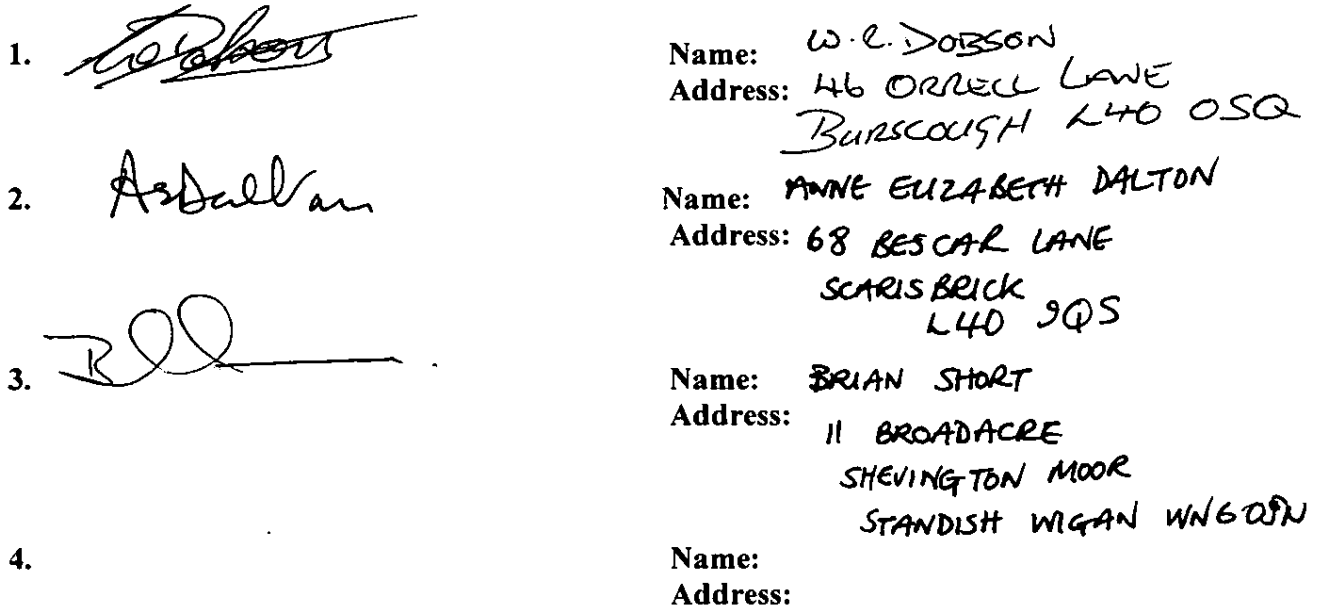 1.
Name: W.R. DOBSON
Address: 46 ORRELL LANE
BURSCOUGH L40 0SQ
2. AEDalton
Name: ANNE ELIZABETH DALTON
Address: 68 BESCAR LANE
SCARISBRICK
L40 9QS
3.
Name: BRIAN SHORT
Address:
11 BROADACRE
SHEVINGTON MOOR
STANDISH WIGAN WN6
4.
Name:
Address: